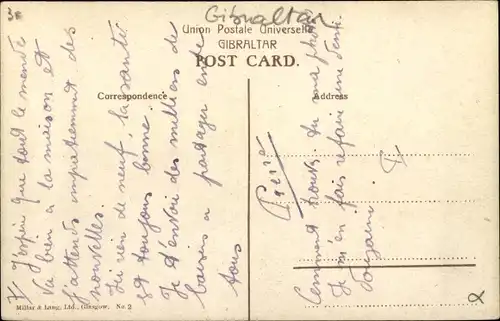 Gibraltar
Union Postale Universelle
GIBRALTAR
POST CARD.
Correspondence
Address
J'espère que tout le monde
va bien à la maison et
J'attends impatiemment des
nouvelles.
Ici rien de neuf, la santé
est toujours bonne.
Je t'envoie des milliers de
baisers à partager entre
tous
Comment trouves tu ma photo
Je m'en fais refaire une demi
Millar & Lang, Ltd., Glasgow. No. 2